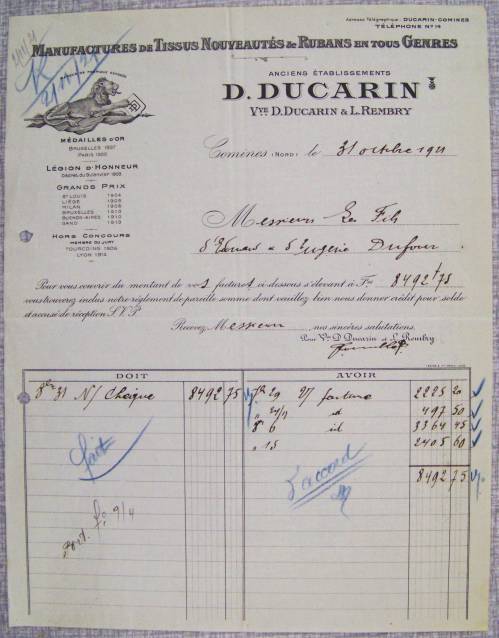 Adresse Télégraphique: DUCARIN-COMINES
TÉLÉPHONE Nº 14
MANUFACTURES DE TISSUS NOUVEAUTÉS & RUBANS EN TOUS GENRES
ANCIENS ÉTABLISSEMENTS
D. DUCARIN
Vve D. DUCARIN & L. REMBRY
MÉDAILLES D'OR
BRUXELLES 1897
PARIS 1900
LÉGION D'HONNEUR
GRANDS PRIX
ST LOUIS 1904
LIÈGE 1905
MILAN 1906
BRUXELLES 1910
BUENOS-AIRES 1910
GAND 1913
HORS CONCOURS
MEMBRE DU JURY
TOURCOING 1906
LYON 1914
Comines (NORD) le 31 octobre 1921
Messieurs Les Fils
d'Edouard & d'Eugène Dufour
Pour vous couvrir du montant de vos factures ci dessous s'élevant à Frs 8492,75
vous trouverez inclus notre règlement de pareille somme dont veuillez bien nous donner crédit pour solde
et accusé de réception S.V.P.
Recevez Messieurs, nos sincères salutations.
Pour Vve D. Ducarin et L. Rembry
DOIT AVOIR
8bre 31 N/ Chèque 8492 75
29 V/ facture 2225 20
id 497 50
6 id 3364 45
" 15 2405 60
8492 75
fait
d'accord